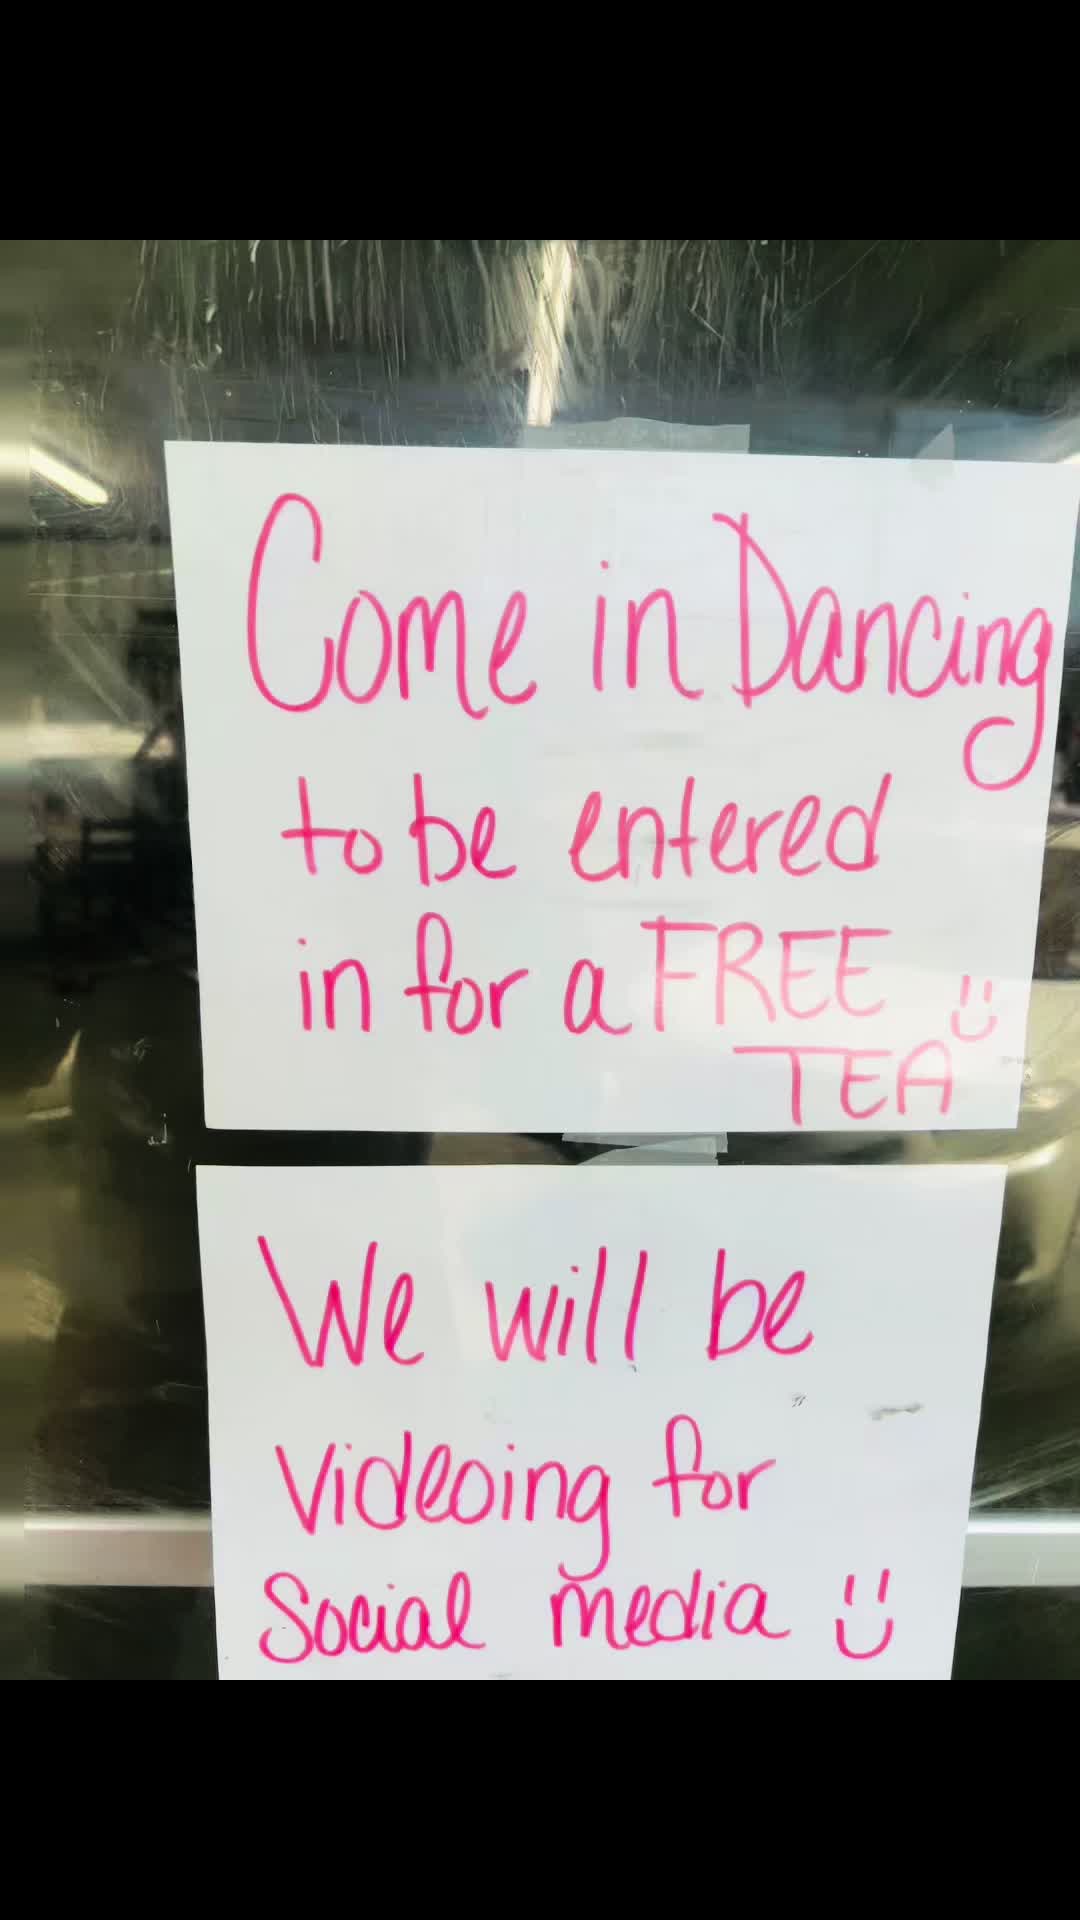 Come in Dancing
to be entered
in for a FREE
TEA
We will be
videoing for
Social media